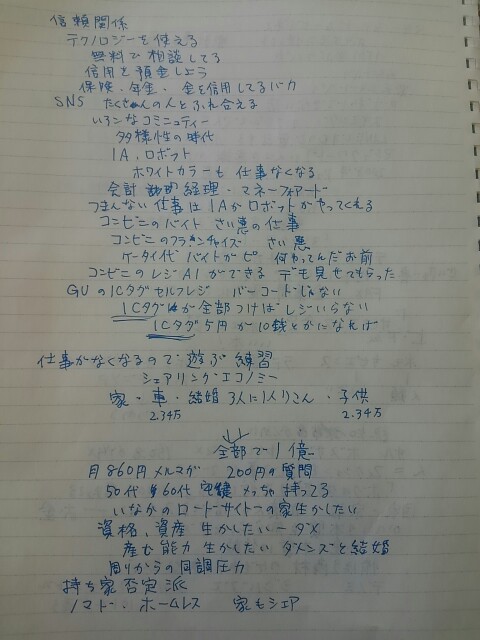 信頼関係
テクノロジーを使える
無料で相談してる
信用を預金しよう
保険、年金、金を信用してるバカ
SNS たくさんの人とふれ合える
いろんなコミニュティー
多様性の時代
IA、ロボット
ホワイトカラーも仕事なくなる
会計 経理・マネーフォアード
つまんない仕事はIAかロボットがやってくれる
コンビニのバイト さい悪の仕事
コンビニのフランチャイズ さい悪
ケータイ代 バイトがピ 何やってんだお前
コンビニのレジAIができる デモ見せてもらった
GUのICタグセルフレジ バーコードじゃない
ICタグが全部つけばレジいらない
ICタグ5円が10銭とかになれば
仕事がなくなるので遊ぶ練習
シェアリングエコノミー
家・車・結婚3人に1人りこん・子供
2.34万 2.34万
全部で1億
月860円メルマガ 200円の質問
50代 60代 宅建 めっちゃ持ってる
いなかのロードサイドの家生かしたい
資格、資産 生かしたい一ダメ
産む能力 生かしたい ダメンズと結婚
周りからの同調圧力
持ち家否定派
ノマド・ホームレス 家もシェア